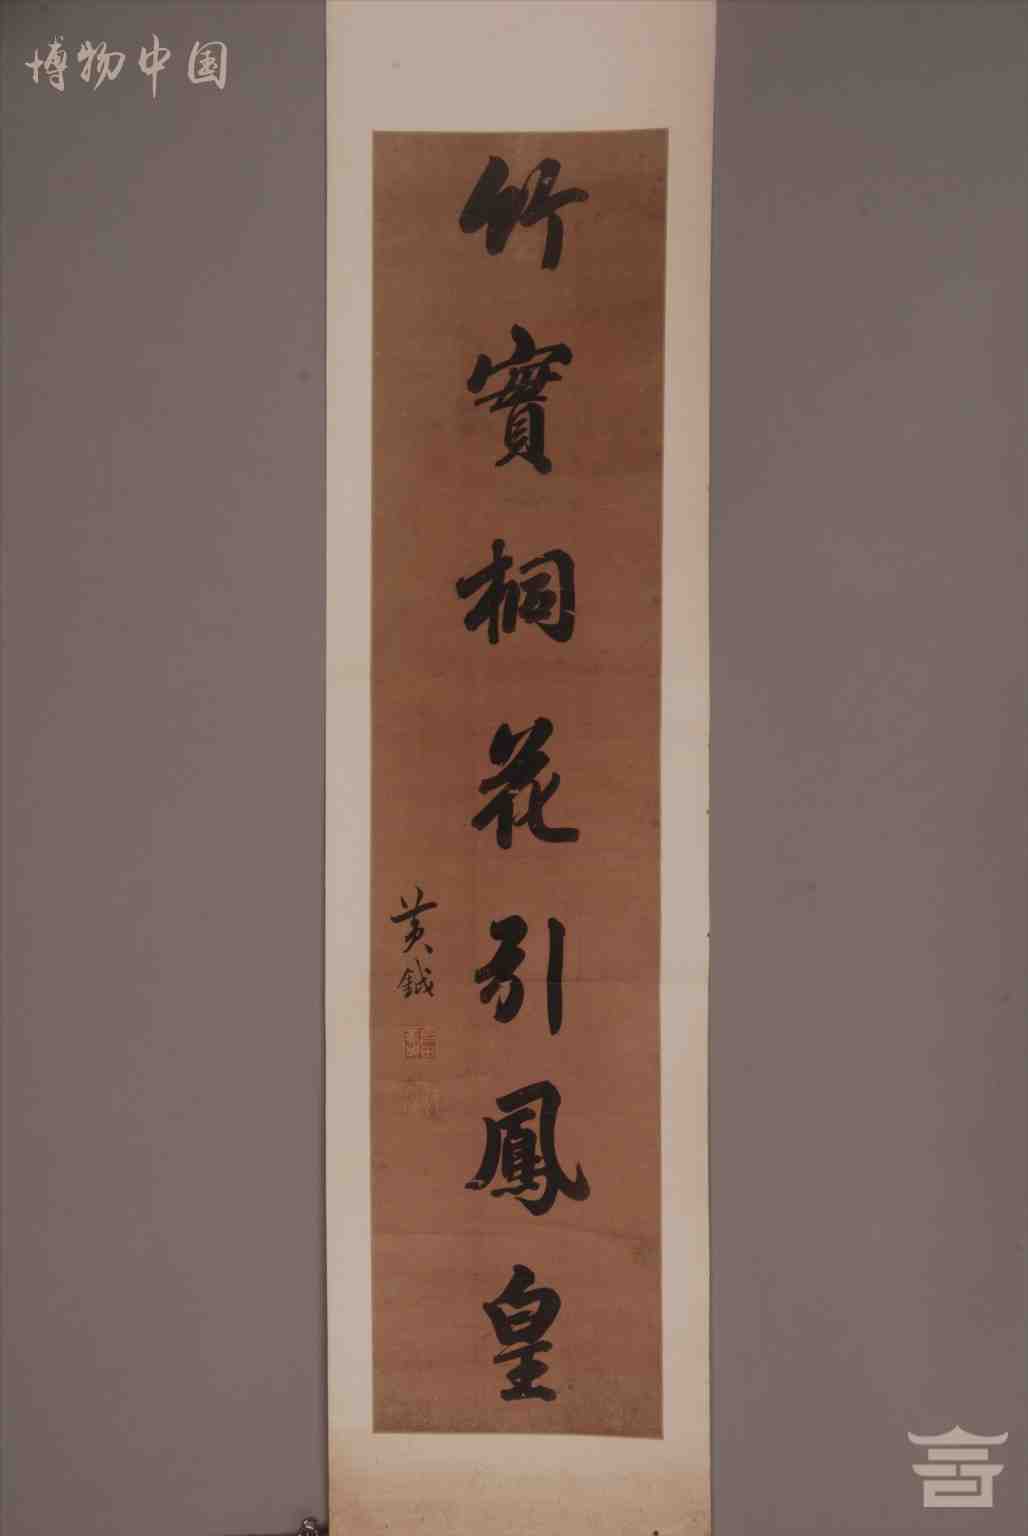 博物中国
竹實桐花引鳳皇
黄鉞